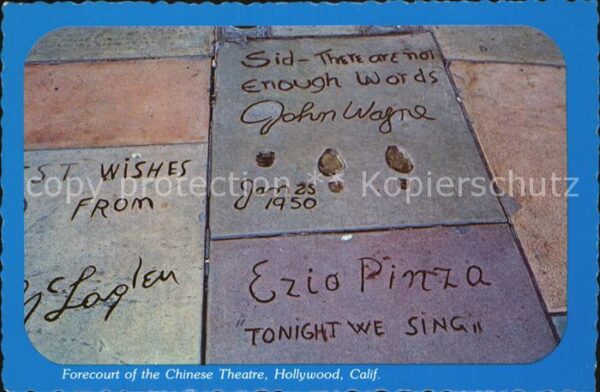 Sid - There are not
Enough Words
John Wayne
Jan 25
1950
EST WISHES
FROM
McLaglen
Ezio Pinza
"TONIGHT WE SING"
copy protection * Kopierschutz *
Forecourt of the Chinese Theatre, Hollywood, Calif.